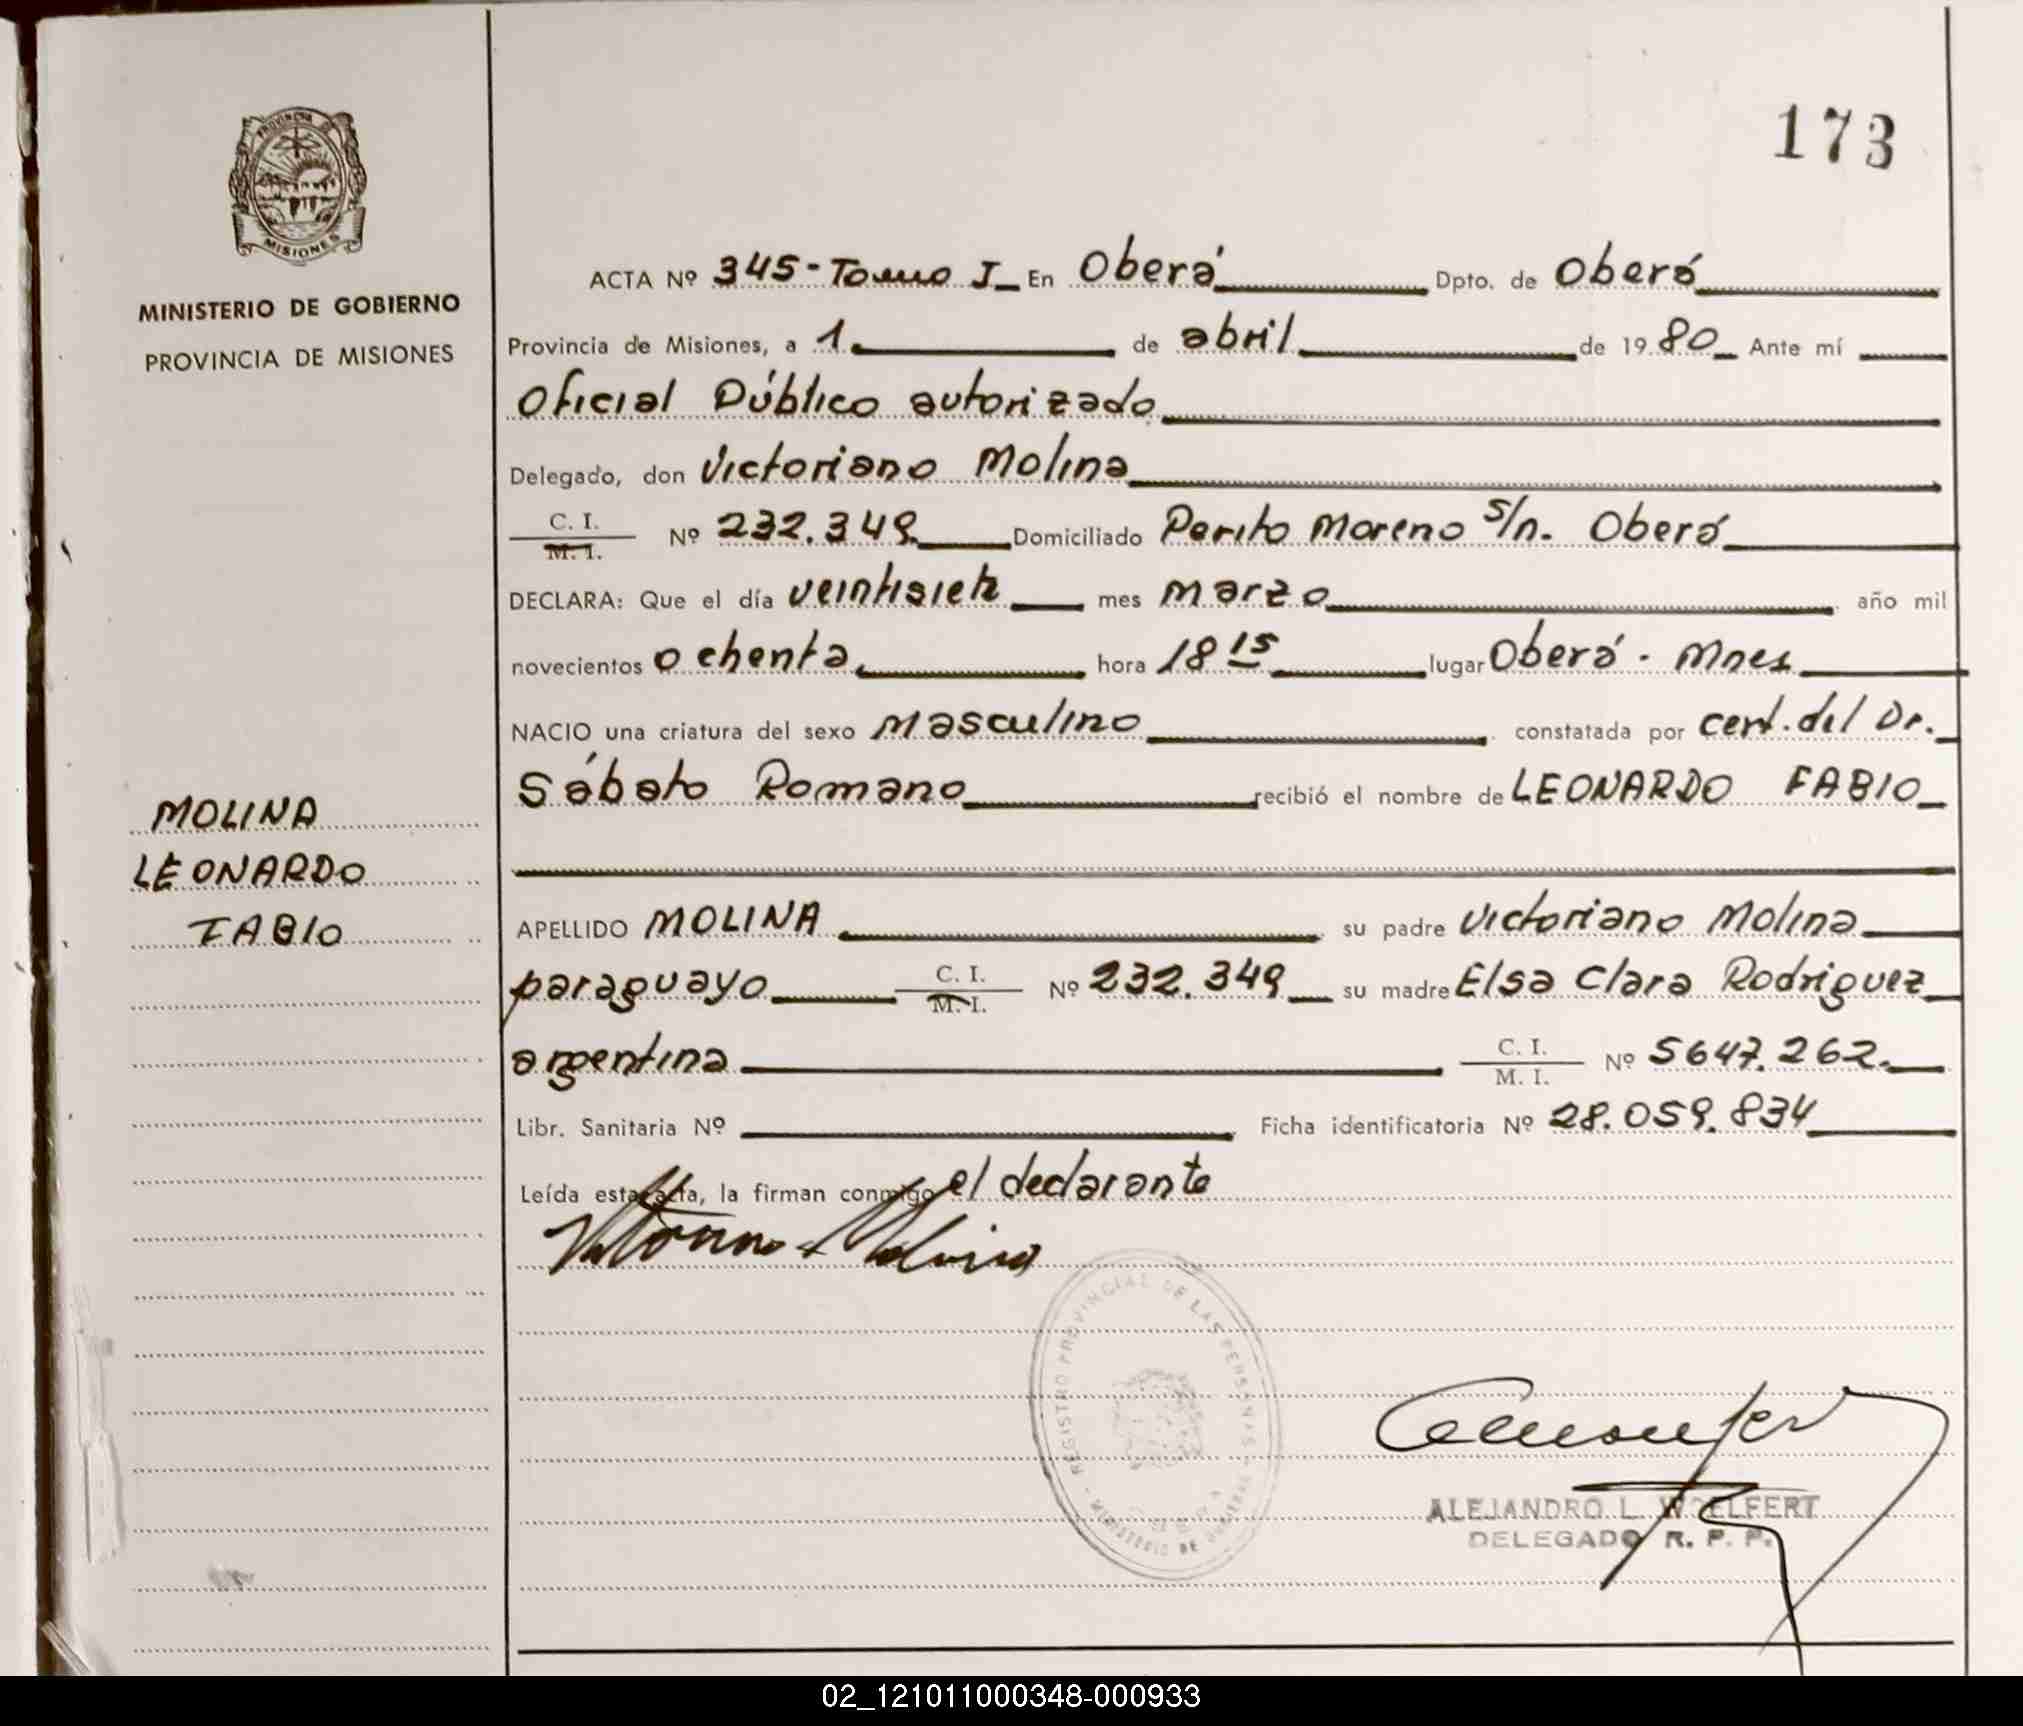 173
PROVINCIA DE
MISIONES
MINISTERIO DE GOBIERNO
PROVINCIA DE MISIONES
MOLINA
LEONARDO
FABIO
ACTA Nº 345-Tomo I_ En Oberá Dpto. de Oberá
Provincia de Misiones, a 1. de abril de 1980_ Ante mí
Oficial Público autorizado
Delegado, don Victoriano Molina
C. I.
M. I.
Nº 232.349 Domiciliado Perito Moreno s/n. Oberá
DECLARA: Que el día veintisiete mes marzo año mil
novecientos ochenta hora 18 15 lugar Oberá - Mnes
NACIO una criatura del sexo masculino constatada por cert. del Dr.
Sábato Romano recibió el nombre de LEONARDO FABIO
APELLIDO MOLINA su padre Victoriano Molina
paraguayo C. I. M. I. Nº 232.349 su madre Elsa Clara Rodriguez
argentina C. I. M. I. Nº 5647.262.
Libr. Sanitaria Nº Ficha identificatoria Nº 28.059.834
Leída esta acta, la firman conmigo el declarante
Victoriano Molina
REGISTRO PROVINCIAL DE LAS PERSONAS - MINISTERIO DE
ALEJANDRO L. WOELFERT
DELEGADO R. P. P.
02_121011000348-000933